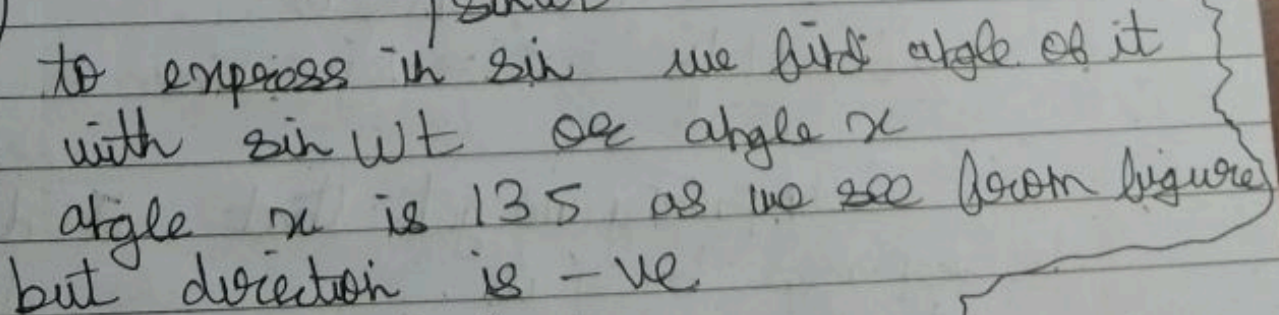 to express in sin we find angle of it
with sin wt or angle x
angle x is 135 as we see from figure
but direction is -ve